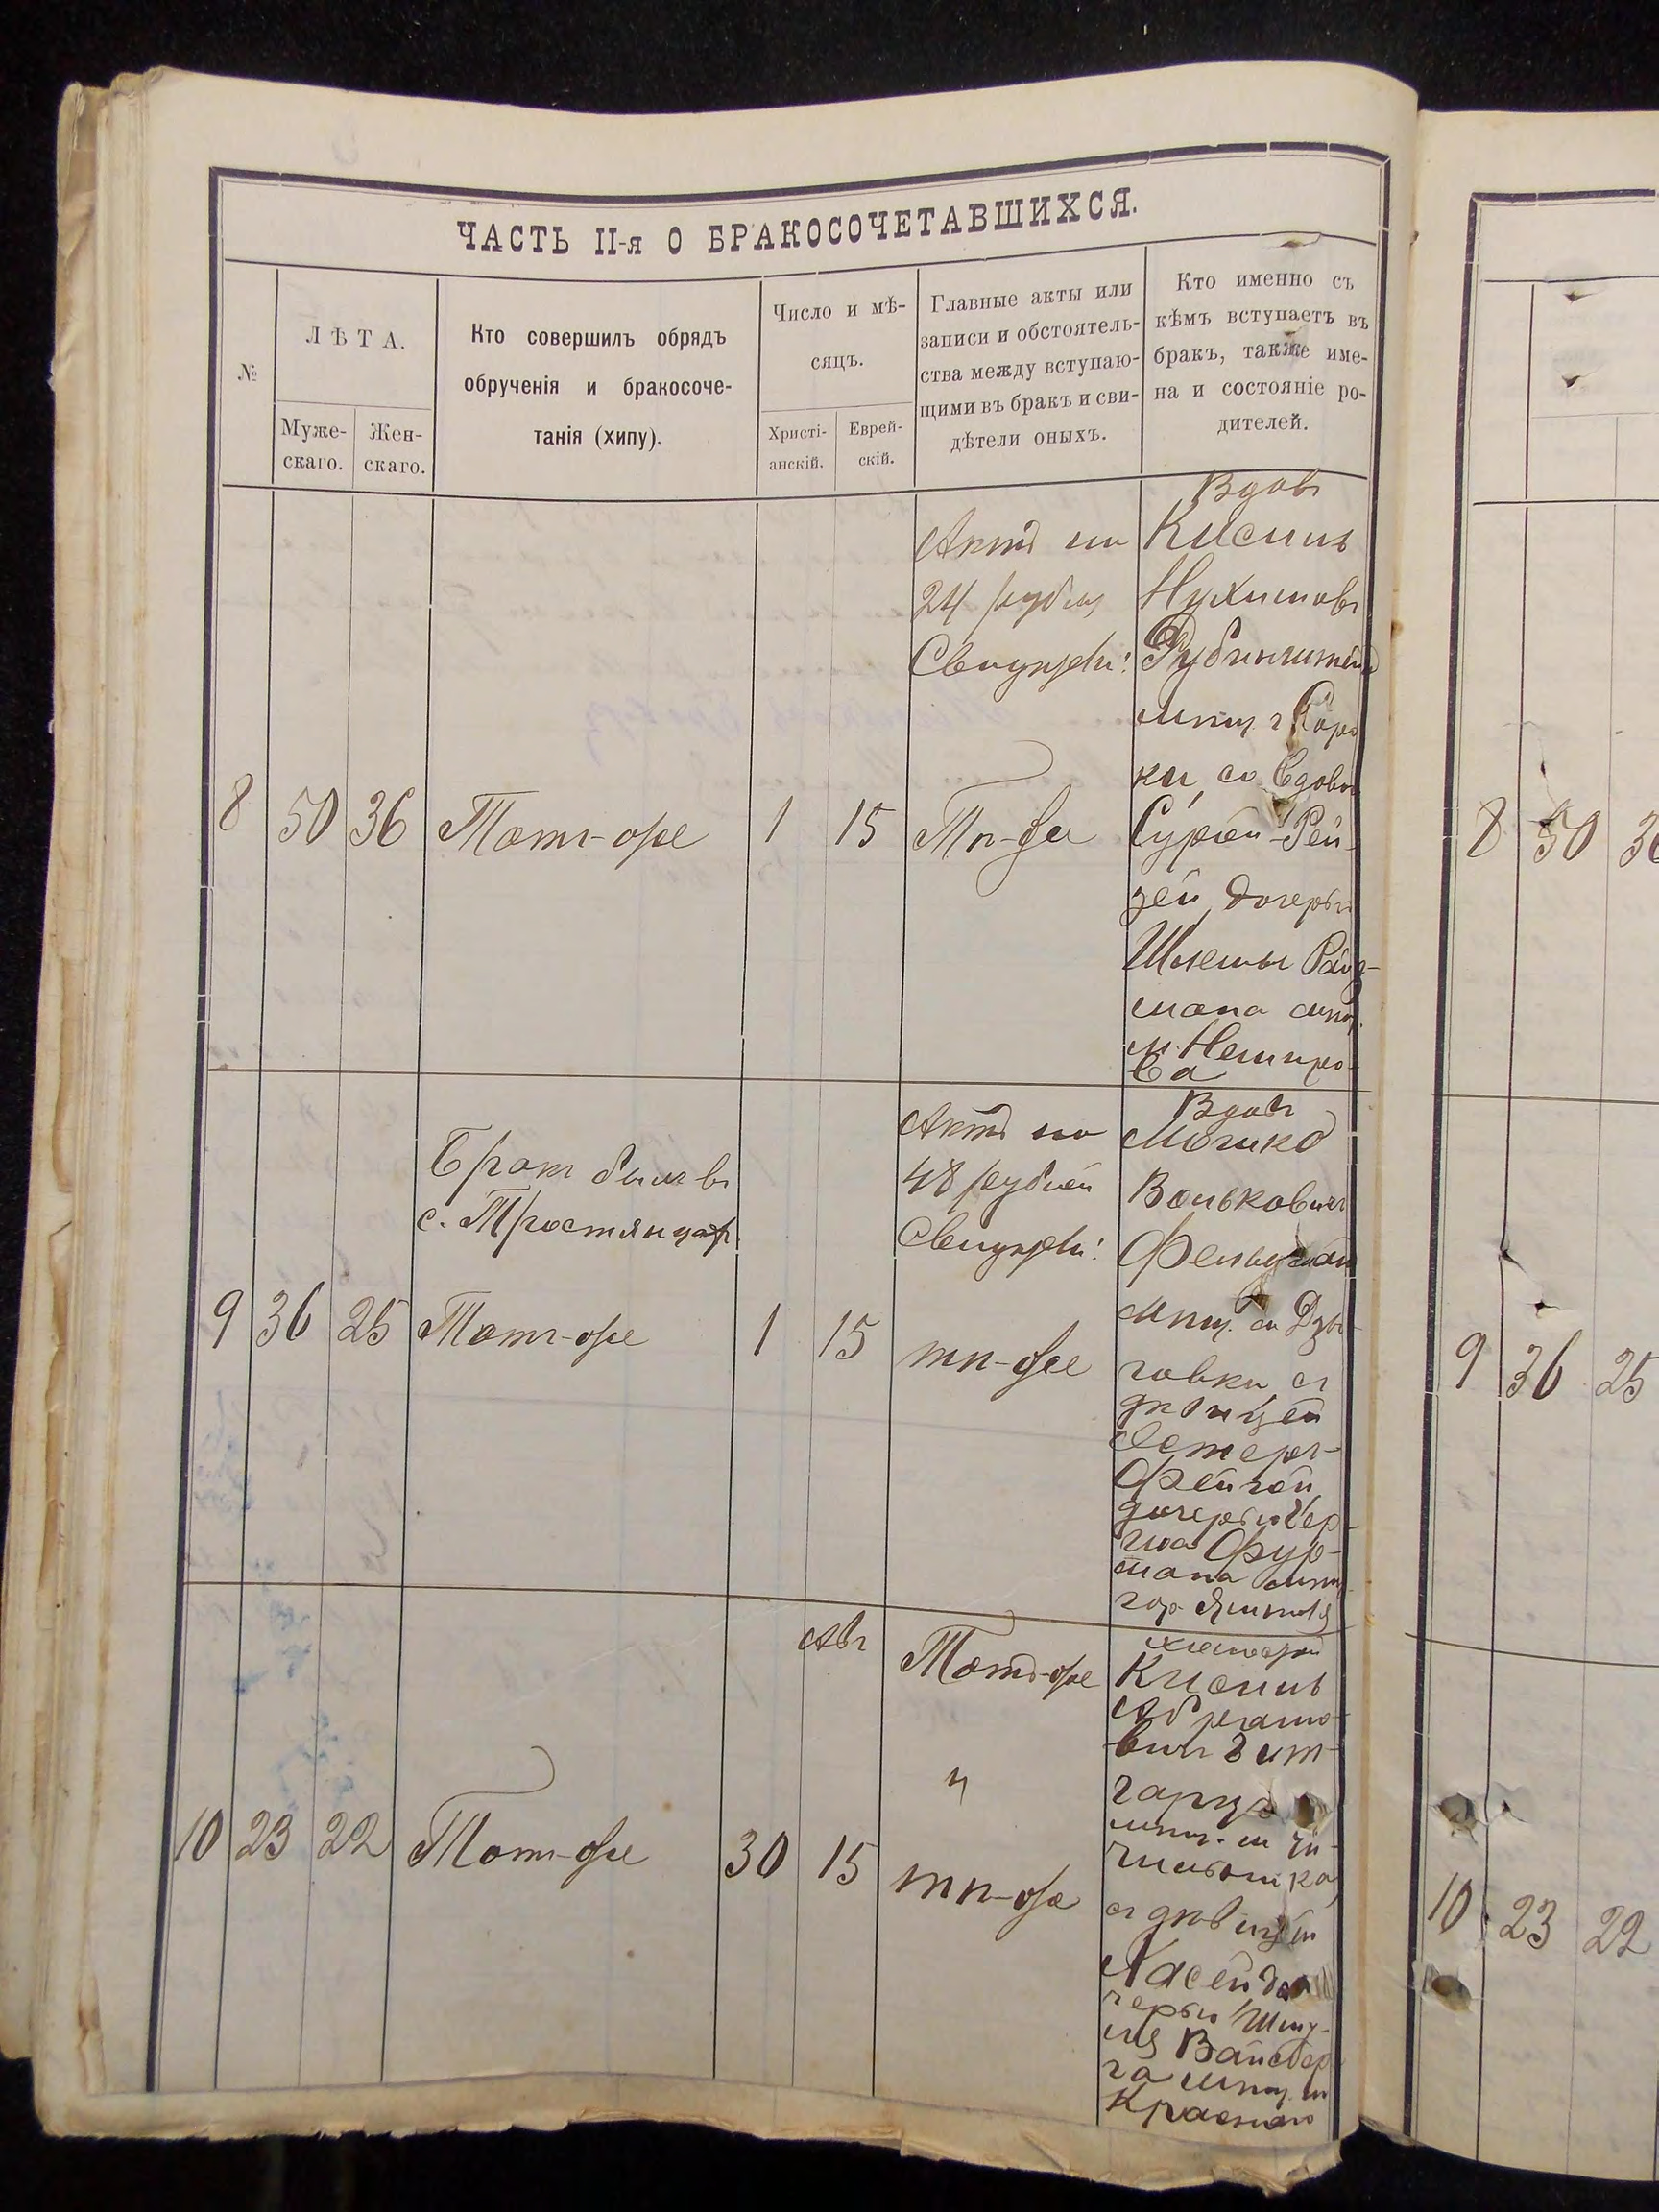 ЧАСТЬ II-я О БРАКОСОЧЕТАВШИХСЯ.
№
ЛѢТА.
Муже-
скаго.
Жен-
скаго.
Кто совершилъ обрядъ
обрученія и бракосоче-
танія (хипу).
Число и мѣ-
сяцъ.
Христі-
анскій.
Еврей-
скій.
Главные акты или
записи и обстоятель-
ства между вступаю-
щими въ бракъ и сви-
дѣтели оныхъ.
Кто именно съ
кѣмъ вступаетъ въ
бракъ, также име-
на и состояніе ро-
дителей.
8
50
36
Тотъ-же
1
15
Актъ на
24 рубля
Тѣ-же
Вдовъ
Кисиль
Нухимовъ
Рубинштейнъ
ки, со вдовою
Сурою-Рей-
зей дочерью
мѣщ.
м. Немиро-
ва
9
36
25
Бракъ былъ въ
с. Тростянцѣ
Тотъ-же
1
15
Актъ на
48 рублей
тѣ-же
Вдовъ
Мошко
Вольковичъ
Фельдман
мѣщ. м Дзы-
говки, съ
дѣвицей
Эстеръ-
Фейгой
дочерью Бер-
ка Фур-
мана мѣщ
гор. Ямполя
10
23
22
Тотъ-же
30
Авъ
15
Тотъ-же
и
тѣ-же
холостой
Кисиль
Абрамо-
вичъ Зит-
гарцъ
мѣщ. м Чи-
чельника
съ дѣвицей
Хасей до-
черью Шму-
ля Вайсбер-
га мѣщ. м
Красного
8
50
9
36
25
10
23
22